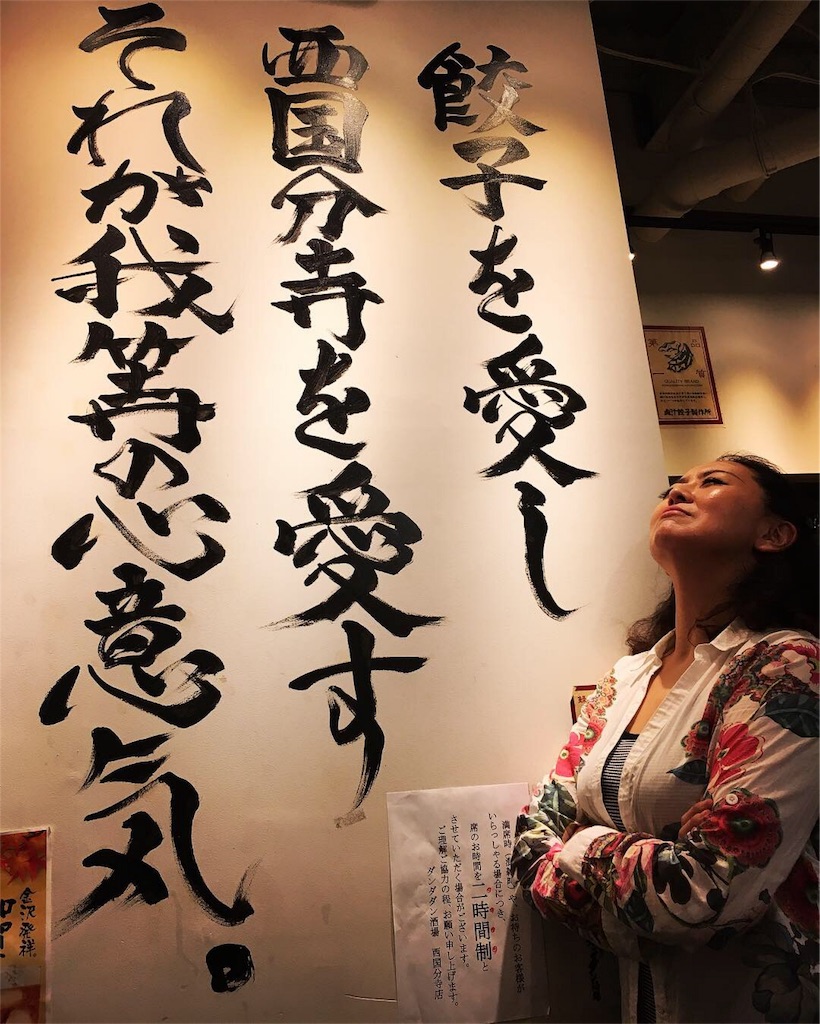 餃子を愛し
西国分寺を愛す
それが我等の心意気。
QUALITY BRAND
肉汁餃子製作所
満席時や、お待ちのお客様が
いらっしゃる場合につき、
席のお時間を二時間制と
させていただく場合がございます。
ご理解ご協力の程、お願い申し上げます。
ダンダダン酒場 西国分寺店
金沢発祥